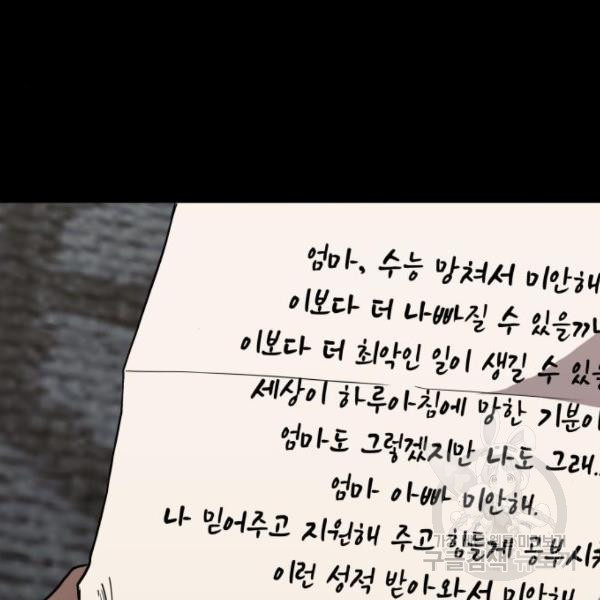 엄마, 수능 망쳐서 미안해
이보다 더 나빠질 수 있을까
이보다 더 최악인 일이 생길 수 있을
세상이 하루아침에 망한 기분이
엄마도 그렇겠지만 나도 그래..
엄마 아빠 미안해.
나 믿어주고 지원해 주고 힘들게 공부시켜
이런 성적 받아와서 미안해
구글검색 뉴토끼